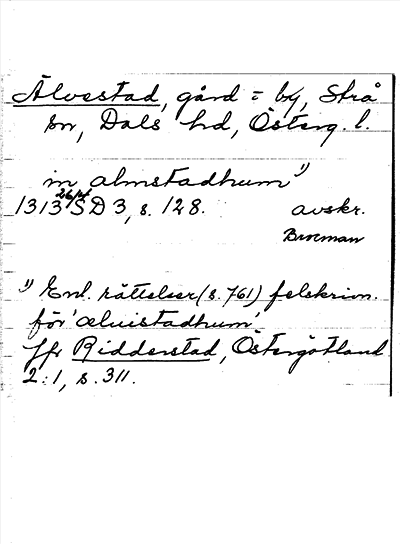 Älvestad, gård = by, Strå
sn, Dals hd, Österg. l.
in almstadhum 1)
1313 26/4 SD 3, s. 128. avskr.
Broeman
1) Enl. rättelser (s. 761) felskrivn.
för 'æluistadhum'.
Jfr Ridderstad, Östergötland
2:1, s. 311.